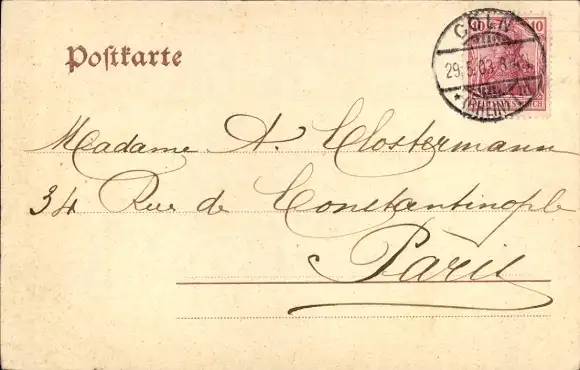 Postkarte
10 10
CÖLN
29.5.03.
* (RHEIN)
Madame A. Clostermann
34 Rue de Constantinople
Paris